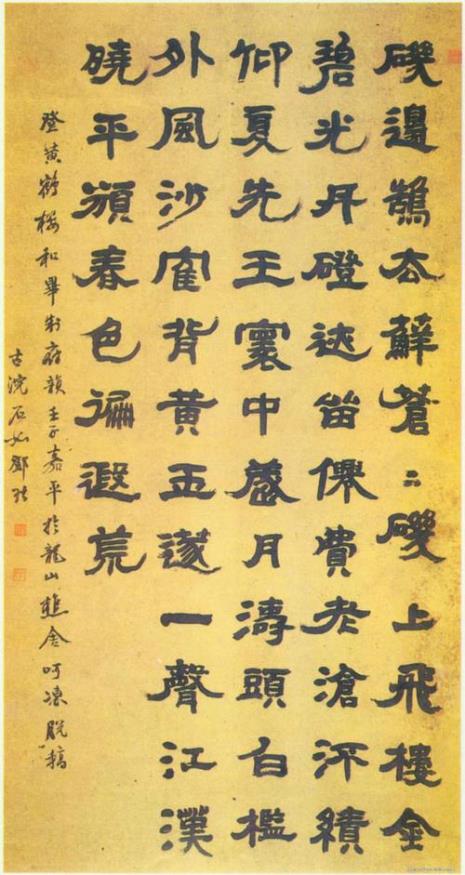 磯邊鵠去蘚蒼〻磯上飛樓金
碧光丹磴留僊費老滄績
仰夏先王寰中月濤頭白檻
外風沙寉背黃玉篴一聲江漢
曉平蘋春色徧遐荒
登黃鶴樓和畢制府韻壬子嘉平於龍山樵舍呵凍脫稿
古浣石如鄧琰